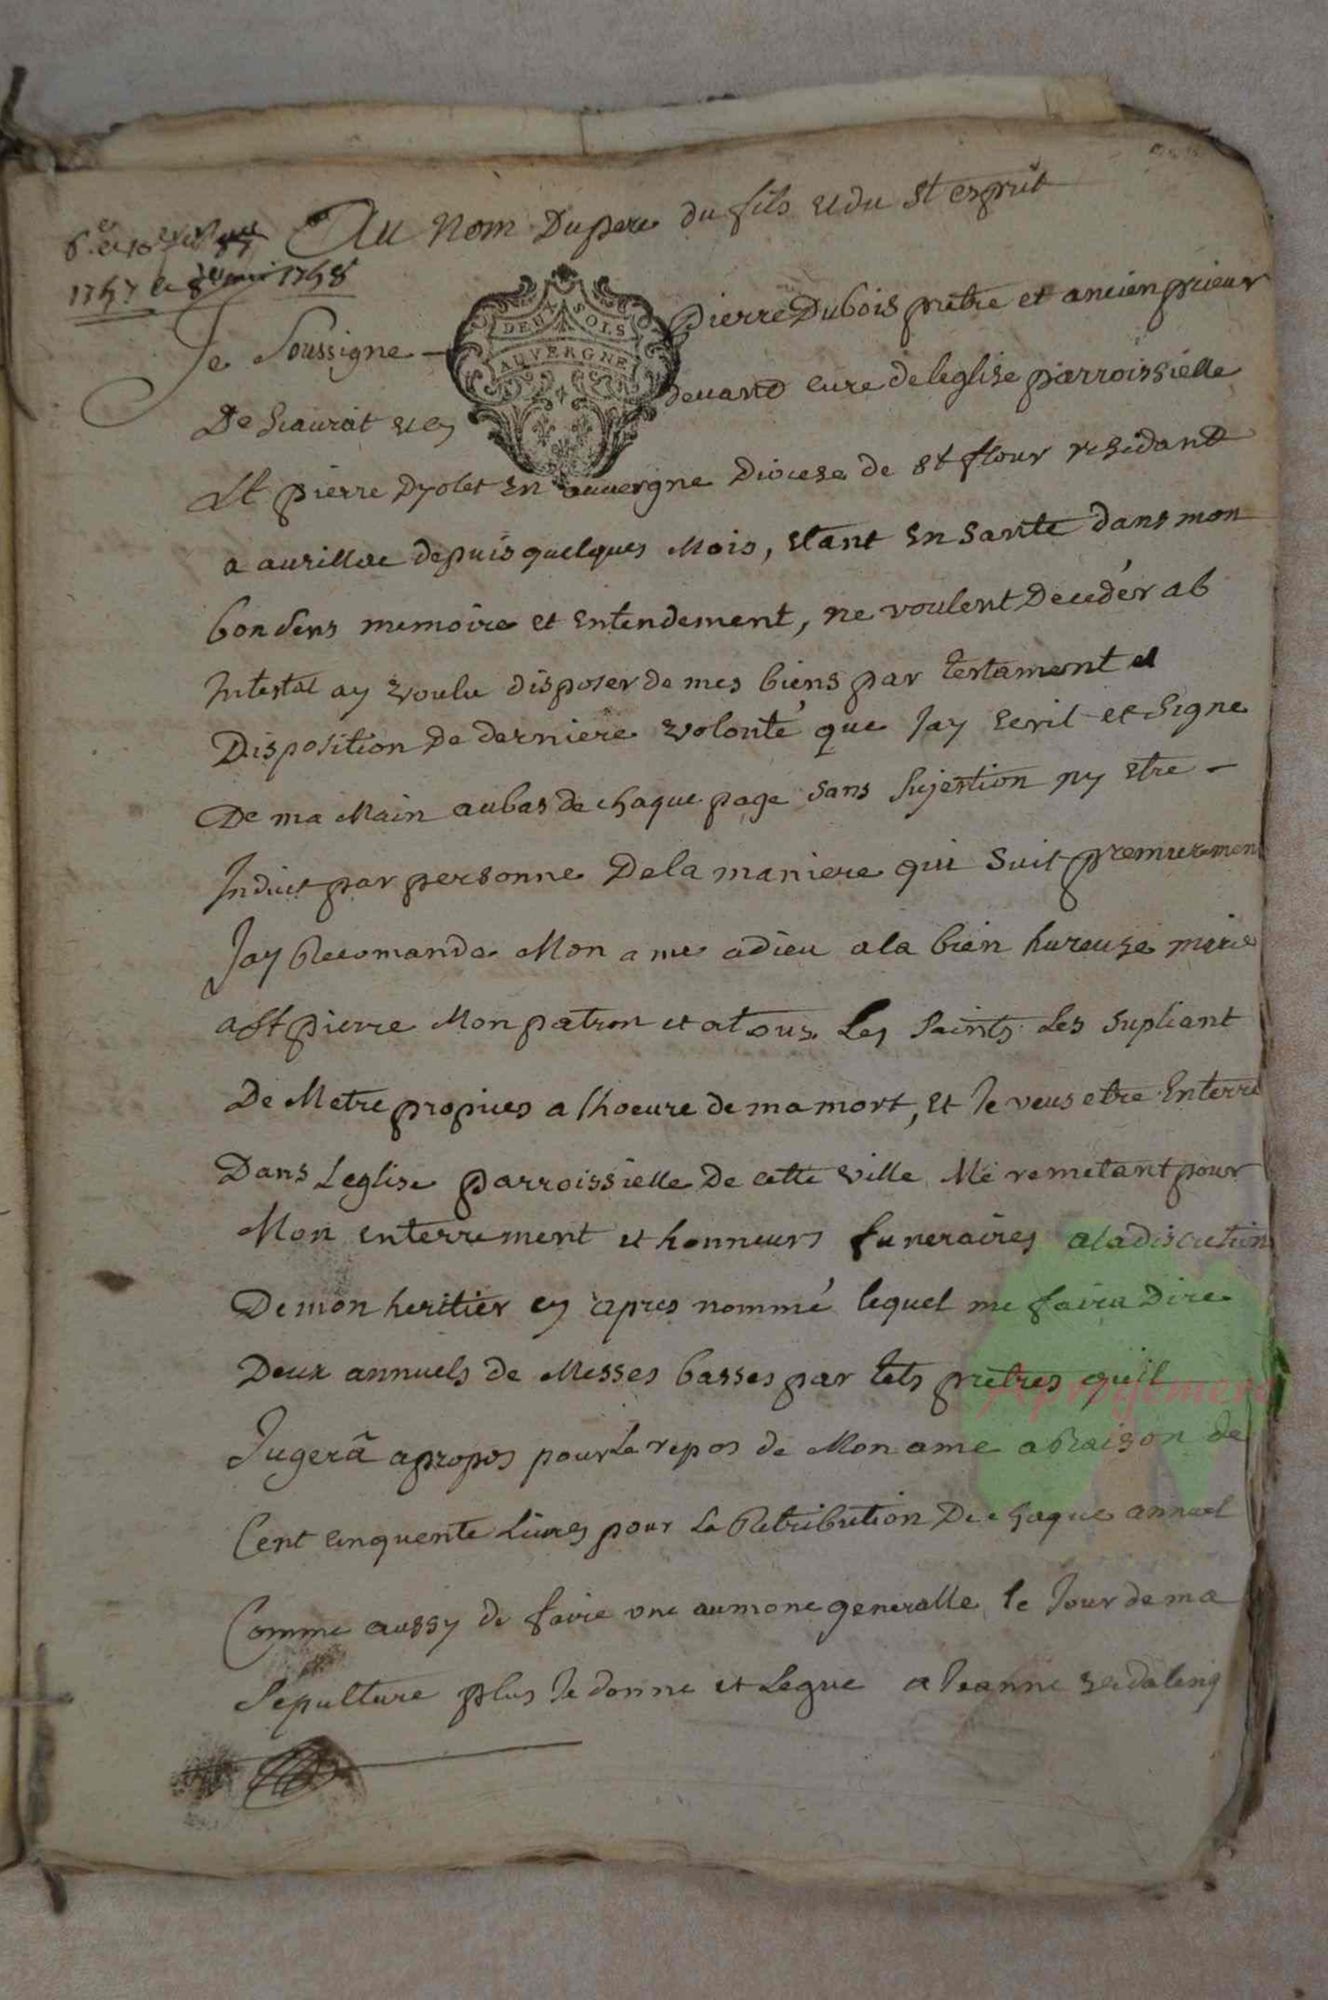 Au Nom Du pere du fils et du St esprit
1757 le 1758
DEUX SOLS
AUVERGNE
Je Soussigne Pierre Dubois prêtre et ancien prieur
De et cy devand cure de leglise parroissielle
St pierre Dyolet En auvergne Diocese de St flour residant
a aurillac depuis quelques Mois, etant En sante dans mon
bon sens memoire et Entendement, ne voulent Decedér ab
Intestat ay voulu disposer de mes biens par testament et
Disposition De derniere volonté que Jay ecrit et signe
De ma Main au bas de chaque page sans Sujestion ny etre
Induit par personne De la maniere qui suit premierement
Jay Recomande Mon ame a dieu a la bien hureuse marie
a St pierre Mon patron et a tous Les Saints Les supliant
De Metre propices a lhoeure de ma mort, Et Je veus etre Enterré
Dans Leglise parroissielle De cette ville Me remetant pour
Mon enterrement et honneurs funeraires a la discretion
De mon heritier cy apres nommé lequel me faira Dire
Deux annuels de Messes basses par tels prêtres quil
Jugerâ apropos pour Le repos de Mon ame a Raison de
Cent cinquente Livres pour La Retribution De chaque annuel
Comme aussy de faire une aumone generalle le Jour de ma
Sepulture plus Je donne et Legue a Jeanne